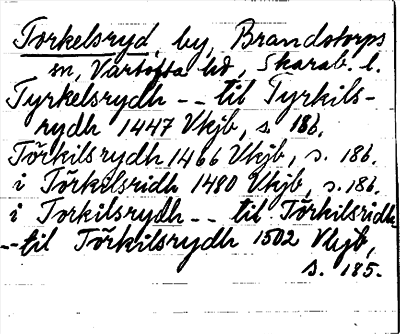 Torkelsryd, by, Brandstorps
sn, Vartofta hd, Skarab. l.
Tyrkelsrydh -- til Tyrkils-
rydh 1447 Vkjb, s. 186.
Törkilsrydh 1466 Vkjb, s. 186.
i Törkilsridh 1480 Vkjb, s. 186.
i Torkilsrydh -- til Törkilsridh
-- til Törkilsrydh 1502 Vkjb,
s. 185.